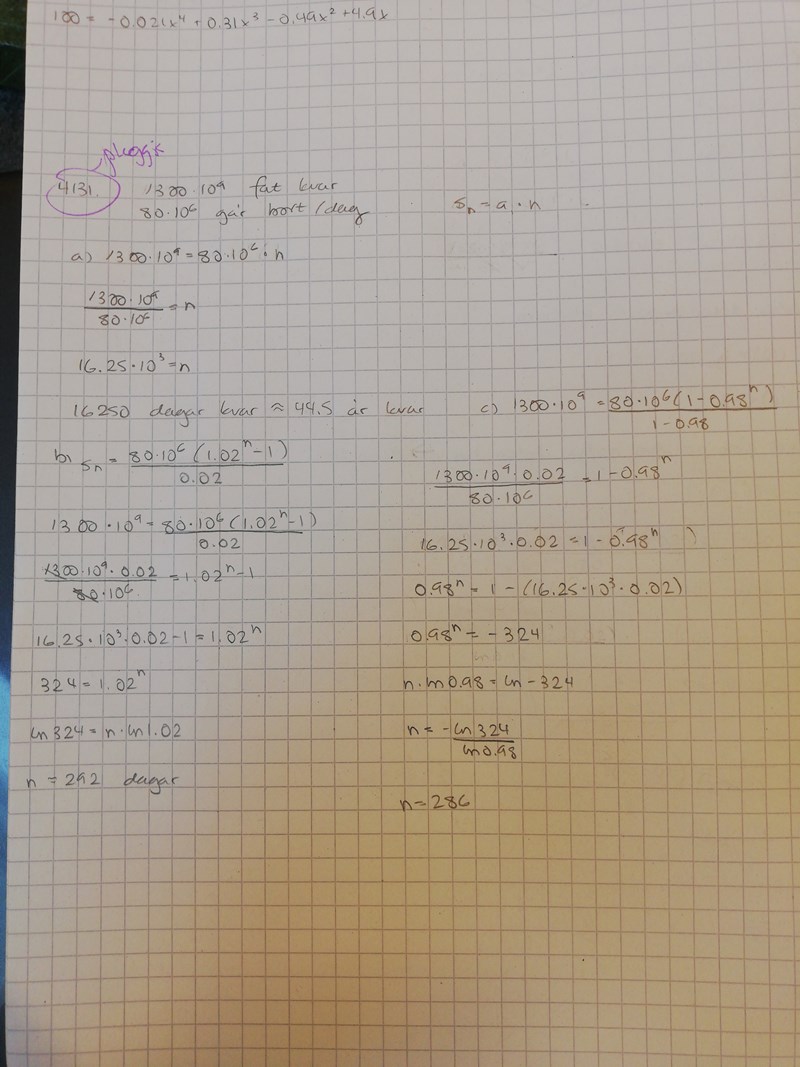 100 = -0.021x⁴ + 0.31x³ - 0.49x² + 4.9x
4131.
1300·10⁹ fat kvar
80·10⁶ går bort/dag
Sₙ = a₁·n
a) 1300·10⁹ = 80·10⁶·n
1300·10⁹/80·10⁶ = n
16.25·10³ = n
16250 dagar kvar ≈ 44.5 år kvar
b) Sₙ = 80·10⁶(1.02ⁿ-1)/0.02
1300·10⁹ = 80·10⁶(1.02ⁿ-1)/0.02
1300·10⁹·0.02/80·10⁶ = 1.02ⁿ-1
16.25·10³·0.02-1 = 1.02ⁿ
324 = 1.02ⁿ
ln324 = n·ln1.02
n = 292 dagar
c) 1300·10⁹ = 80·10⁶(1-0.98ⁿ)/1-0.98
1300·10⁹·0.02/80·10⁶ = 1-0.98ⁿ
16.25·10³·0.02 = 1-0.98ⁿ
0.98ⁿ = 1-(16.25·10³·0.02)
0.98ⁿ = -324
n·ln0.98 = ln-324
n = -ln324/ln0.98
n = 286